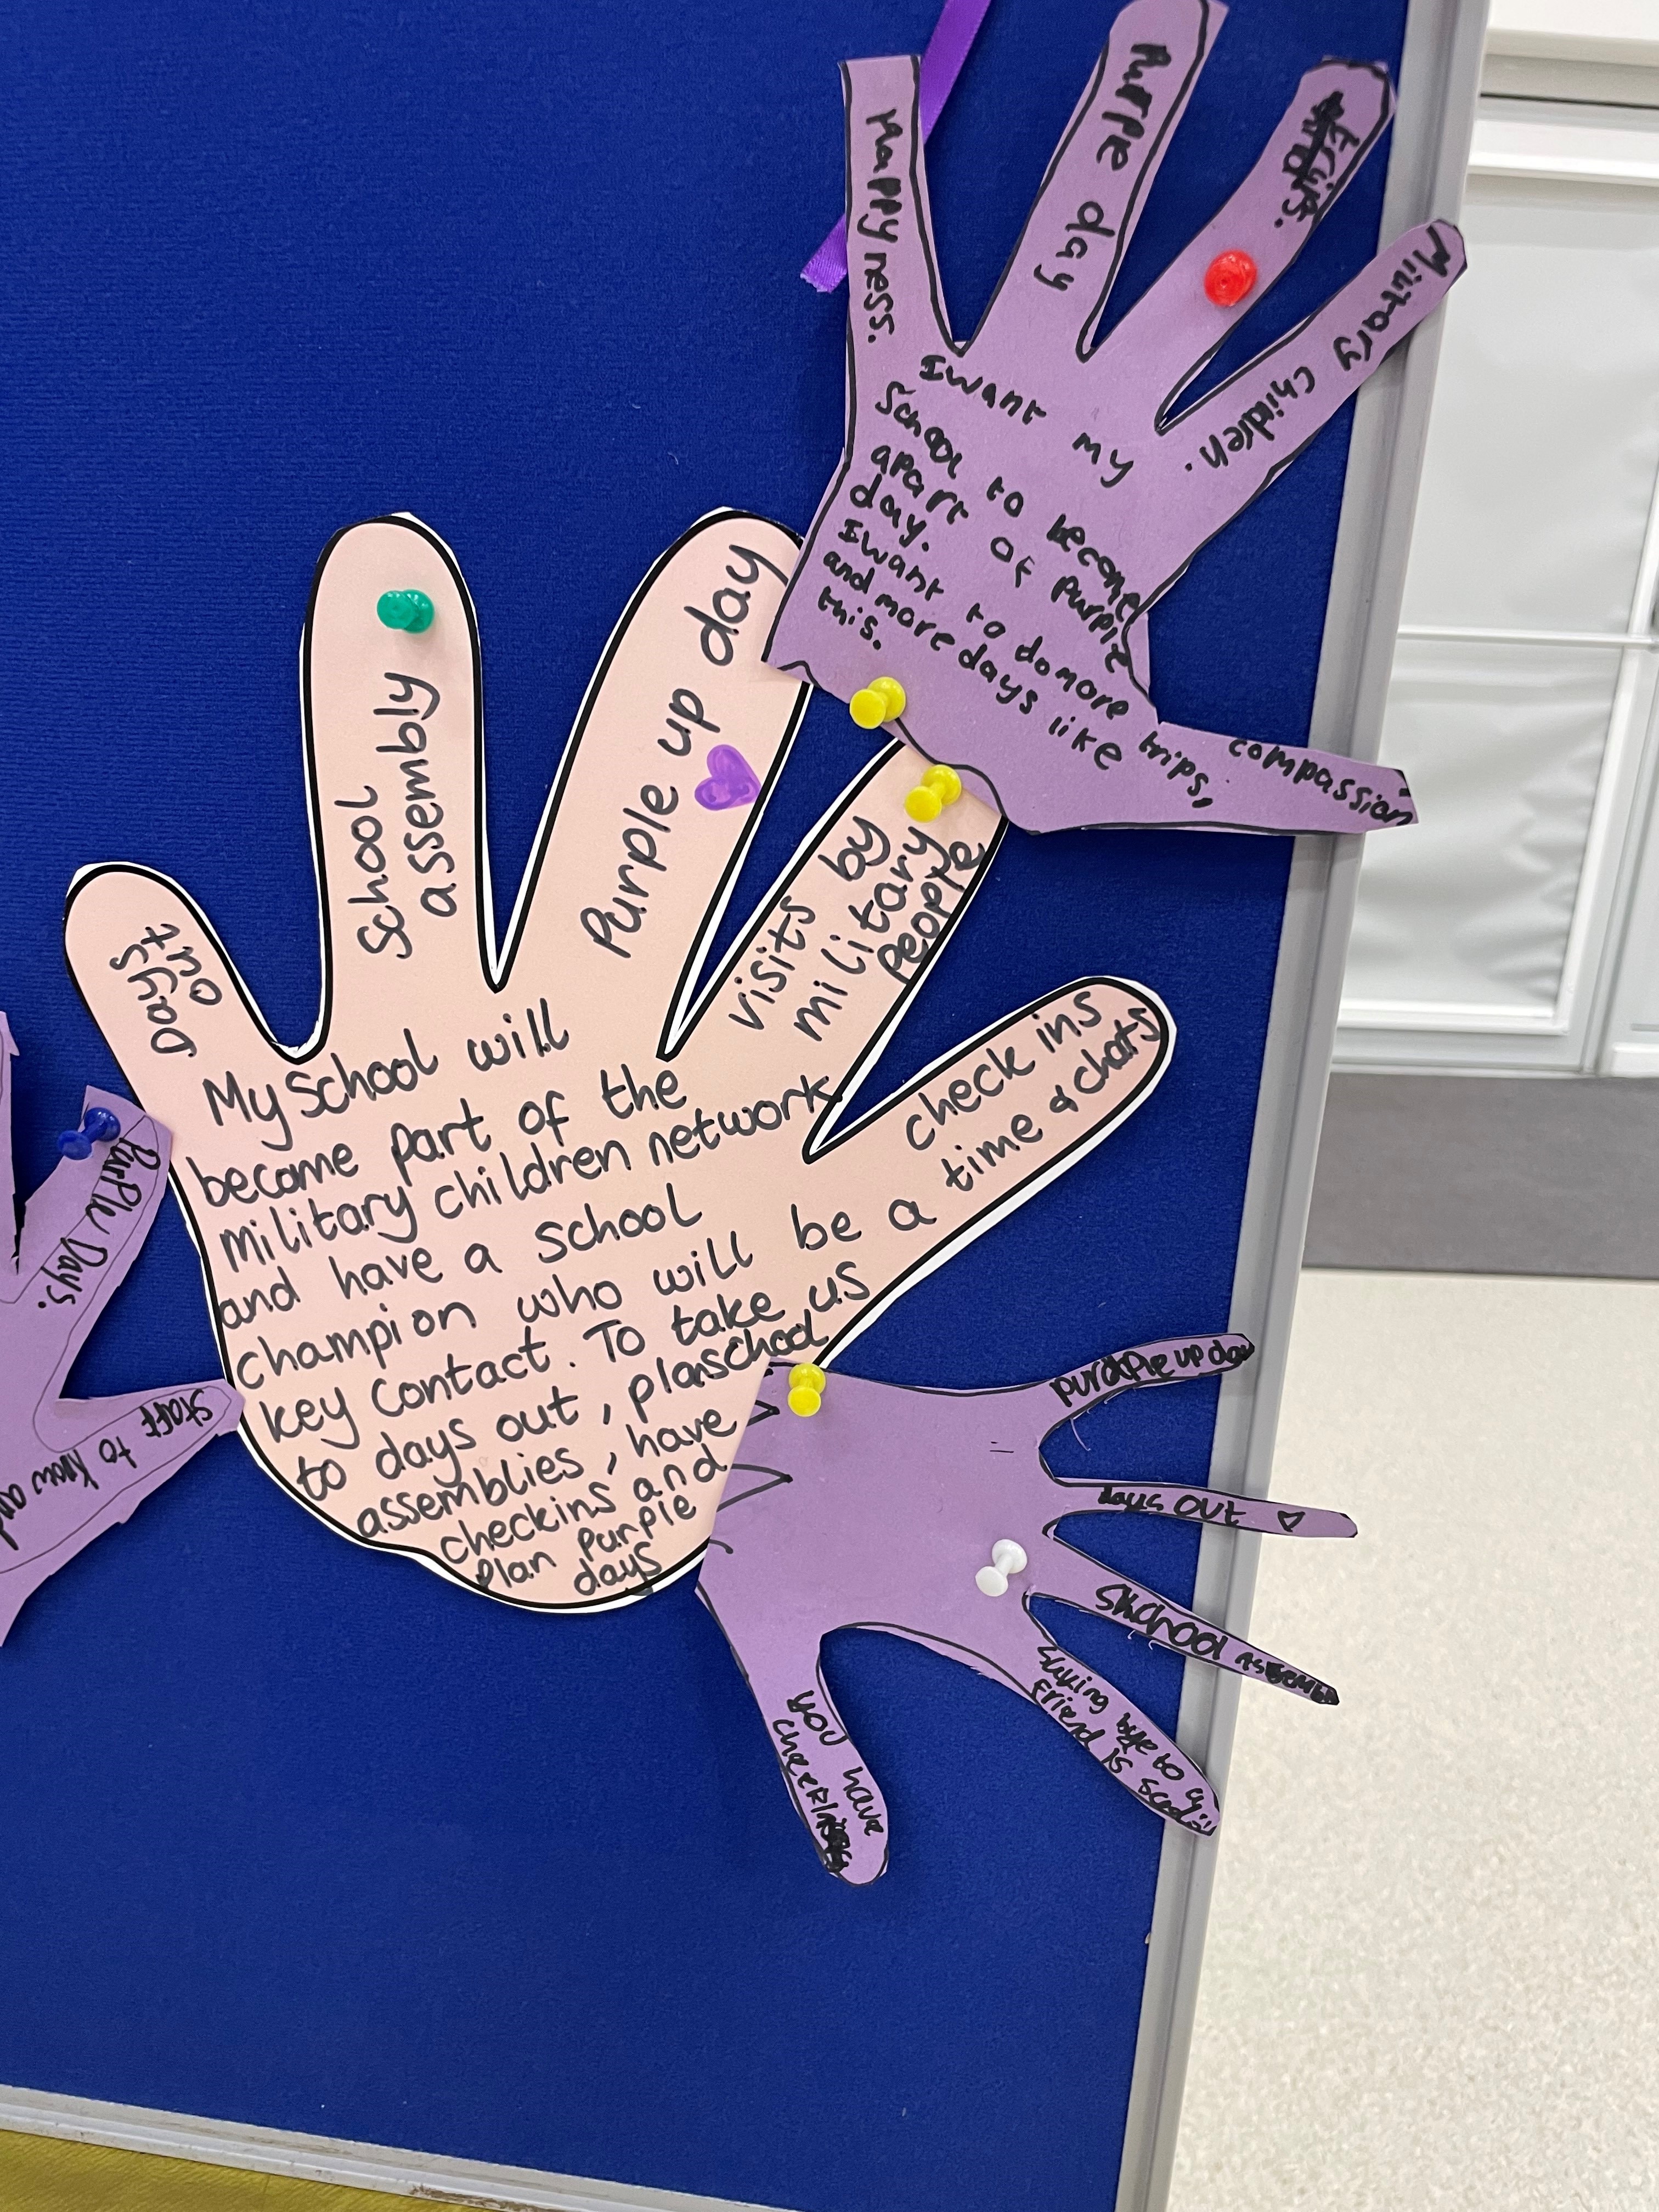 Happyness.
Purple day
trips.
Miutary children.
compassion
I want my
School to become
apart of purple
day.
I want to do more trips,
and more days like
this.
Days
out
School
assembly
Purple up day
visits by
military
people
check ins
time & chats
My School will
become part of the
military children network
and have a school
champion who will be a
key contact. To take us
to days out, plan school
assemblies, have
checkins and
plan purple
days
PurPle Days.
Staff to know and
days OUT
you have
saying bye to a
friend is sad